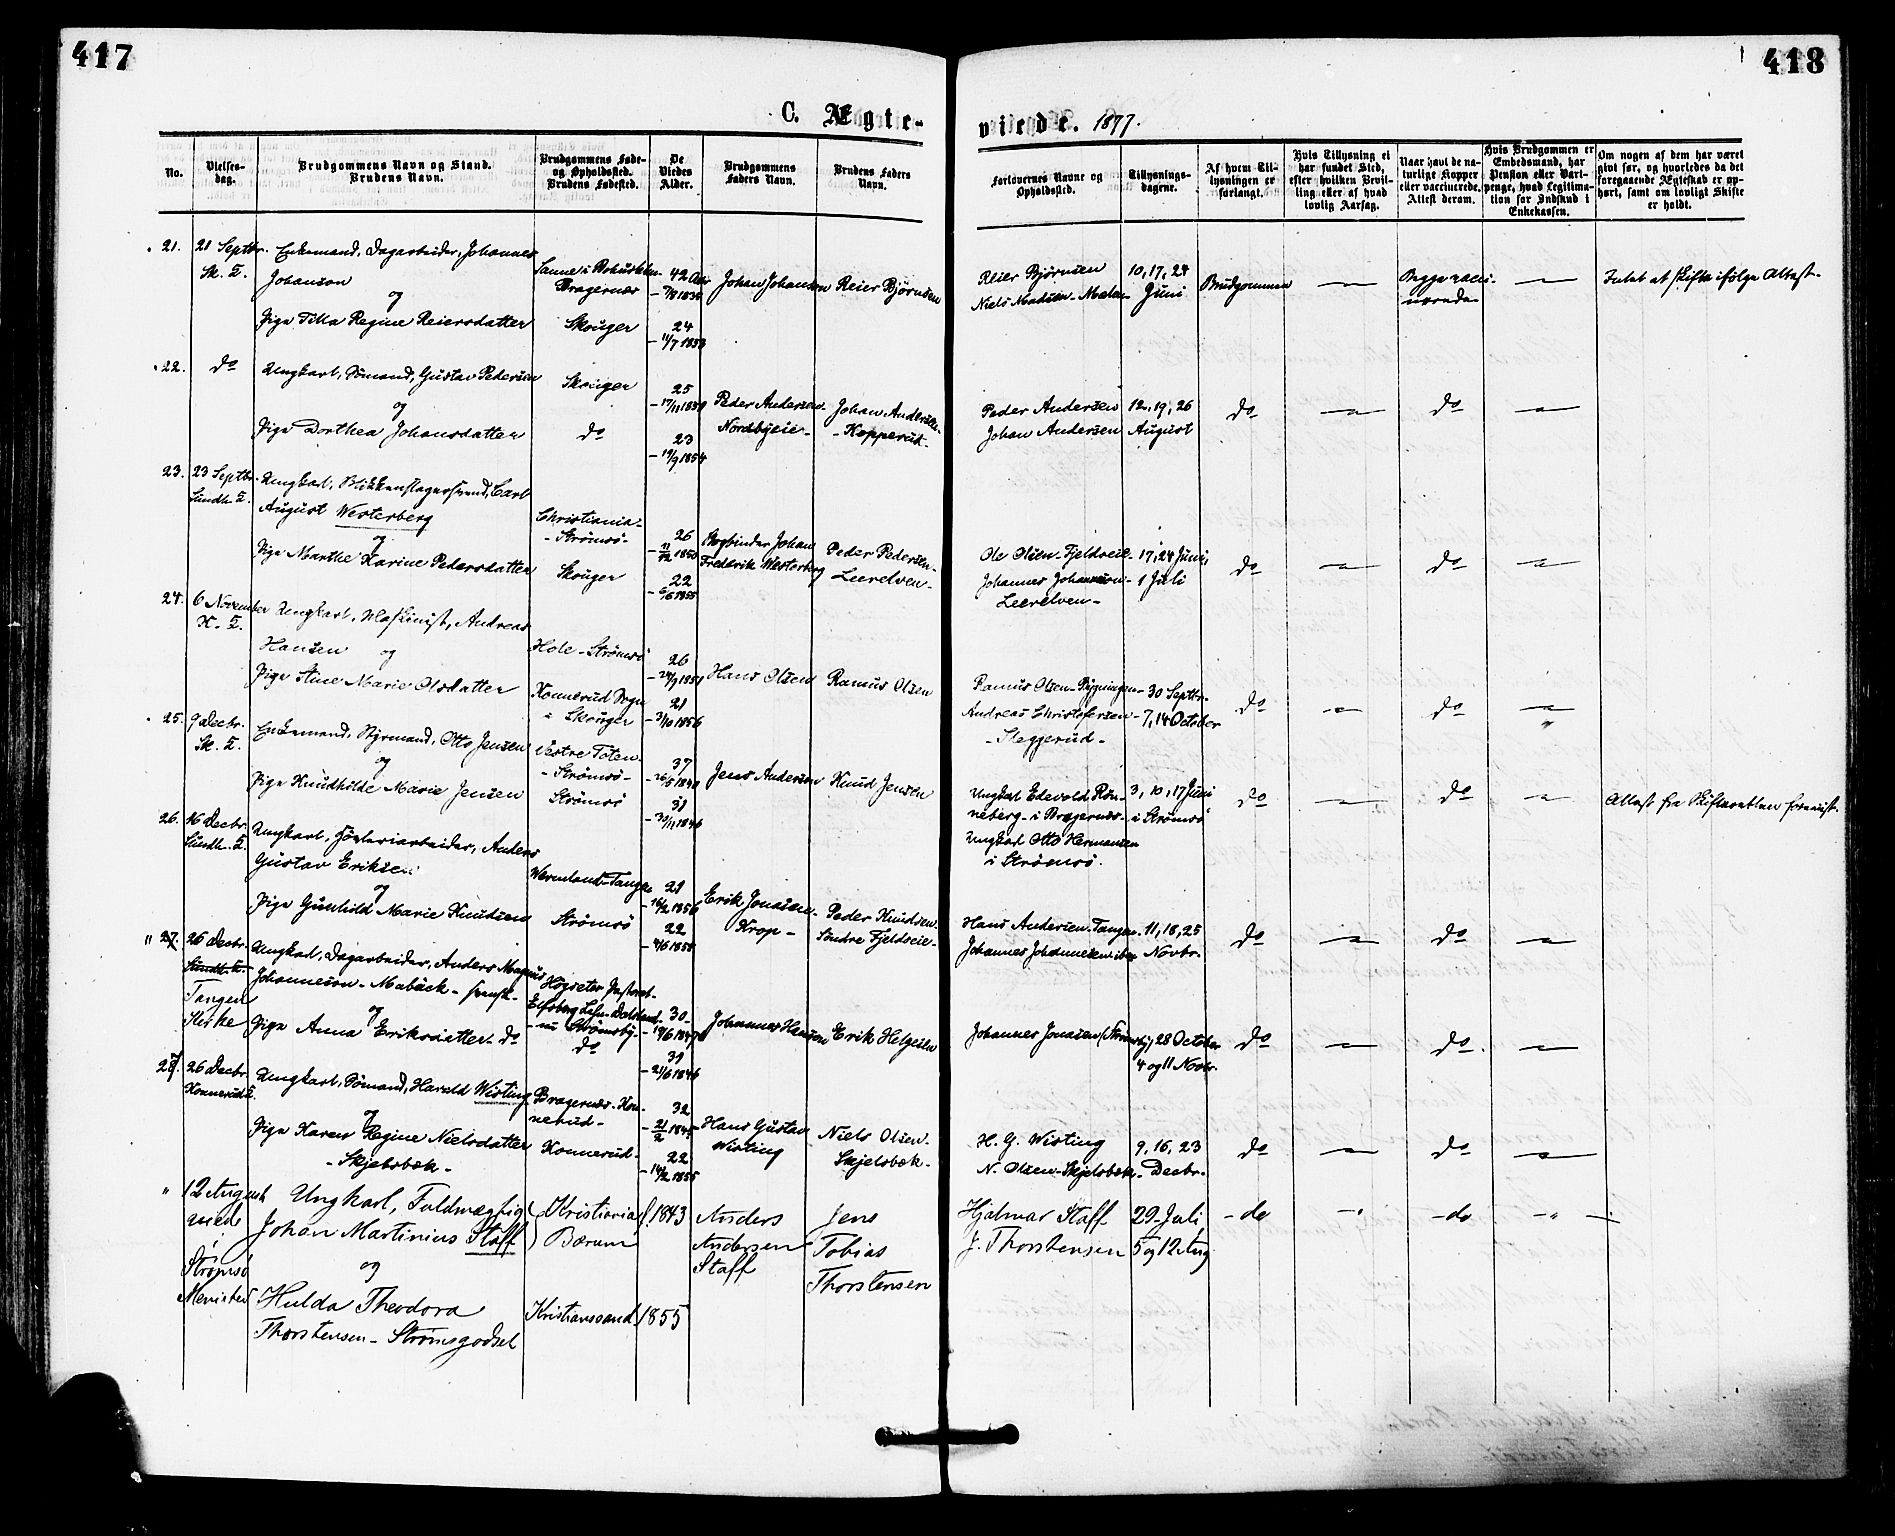 417
418
C. Ægteviede. 1877.
No.
Vielses-
dag.
Brudgommens Navn og Stand.
Brudens Navn.
Brudgommens Føde-
og Opholdssted.
Brudens Fødested.
De
Viedes
Alder.
Brudgommens
Faders Navn.
Brudens Faders
Navn.
Forlovernes Navne og
Opholdssted.
Tillysnings-
dagene.
Af hvem Til-
lysningen er
forlangt.
Hvis Tillysning ei
har fundet Sted,
efter hvilken Bevil-
ling eller af hvad
lovlig Aarsag.
Naar havt de na-
turlige Kopper
eller vaccinerede.
Attest derom.
Hvis Brudgommen er
Embedsmand, har
Pension eller Vart-
penge, hvad Legitima-
tion for Indskud i
Enkekassen.
Om nogen af dem har været
givt før, og hvorledes da det
foregaaende Ægteskab er op-
hørt, samt om lovligt Skifte
er holdt.
21. 21 Septbr.
Sk. K.
Enkemand, Dagarbeider, Johannes
Johanson
og
Pige Tilla Regine Reiersdatter
Bragernæs
Skouger
42
24
11/7 1853
Johan Johansen
Reier Bjørnsen
Reier Bjørnsen
Niels Madsen
10, 17, 24
Juni
Brudgommen
—
Begge vacci-
nerede
—
Intet at skifte ifølge Attest.
22. do
Ungkarl, Sømand, Gustav Pedersen
og
Pige Dorthea Johansdatter
Skouger
do
25
23
19/9 1854
Peder Andersen
Nordbyeie
Johan Andersen
Kopperud
Peder Andersen
Johan Andersen
12, 19, 26
August
do
—
do
—
23. 23 Septbr.
Sundh. K.
Ungkarl, Blikkenslagersvend, Carl
August Westerberg
og
Pige Marthe Karine Pedersdatter
Christiania-
- Strömsö -
Skouger
26
22
Bogbinder Johan
Fredrik Westerberg
Peder Pedersen
Leerelven
Ole Olsen - Fjeldveie
Johannes Johannesen
Leerelven
17, 24 Juni,
1 Juli
do
—
do
—
24. 6 November
K. K.
Ungkarl, Maskinist, Andreas
Hansen og
Pige Stine Marie Olsdatter
Hole - Strömsö
Konnerud Sogn
i Skouger
26
21
31/10 1856
Hans Olsen
Ramus Olsen
Ramus Olsen
Andreas Christofersen
- Sleggerud -
30 Septbr.
7, 14 October
do
—
do
—
25. 9 Decbr.
Sk. K.
Enkemand, Styrmand, Otto Jensen
og
Pige Knudhilde Marie Jensen
Vestre Toten
- Strömsö -
Strömsö
37
31
Jens Andersen
Knud Jensen
Ungkarl Edevold Røn-
neberg - i Bragernæs
Ungkarl Otto Hermansen
i Strömsö.
3, 10, 17 Juni
i Strömsö
do
—
do
—
Attest fra Skifteretten forevist.
26. 16 Decbr.
Sundh. K.
Ungkarl, Høvleriarbeider, Anders
Gustav Eriksen
og
Pige Gunhild Marie Knudsen
Wermland - Tangen
Strömsö
21
22
Erik Jonasen
Krop -
Peder Knudsen
Søndre Fjeldveie
Hans Andersen - Tangen
Johannes Johannesen ibid
11, 18, 25
Novbr.
do
—
do
—
27. 26 Decbr.
Sundh. K.
Tangen
Kirke
Ungkarl, Dagarbeider, Anders Magnus
Johanneson - Mabäck - svensk -
og
Pige Anna Eriksdatter - do
- nu Strömsby -
do
30
31
21/6 1846
Johannes Hansen
Erik Helgesen
Johannes Jonasen (Strömsby)
28 October
4 og 11 Novbr.
do
—
do
—
27. 26 Decbr.
Konnerud K.
Ungkarl, Sømand, Harald Wisting
og
Pige Karen Regine Nielsdatter
- Skjelsbæk -
Bragernæs - Kon-
nerud -
Konnerud
32
22
14/2 1855
Hans Gustav
Wisting
Niels Olsen
Skjelsbæk
H. G. Wisting
N. Olsen - Skjelsbæk
9, 16, 23
Decbr.
do
—
do
—
" 12 August
med
Strømsø
Menighed
Ungkarl, Fuldmægtig
Johan Martinius Staff
og
Hulda Theodora
Thorstensen - Strømsgodset
Kristiania
Bærum
Kristianssand
f. 1843
1855
Anders
Andersen
Staff
Jens
Tobias
Thorstensen
Hjalmar Staff
J. Thorstensen
29 Juli,
5 og 12 Aug
- do
—
- do
- " -
—